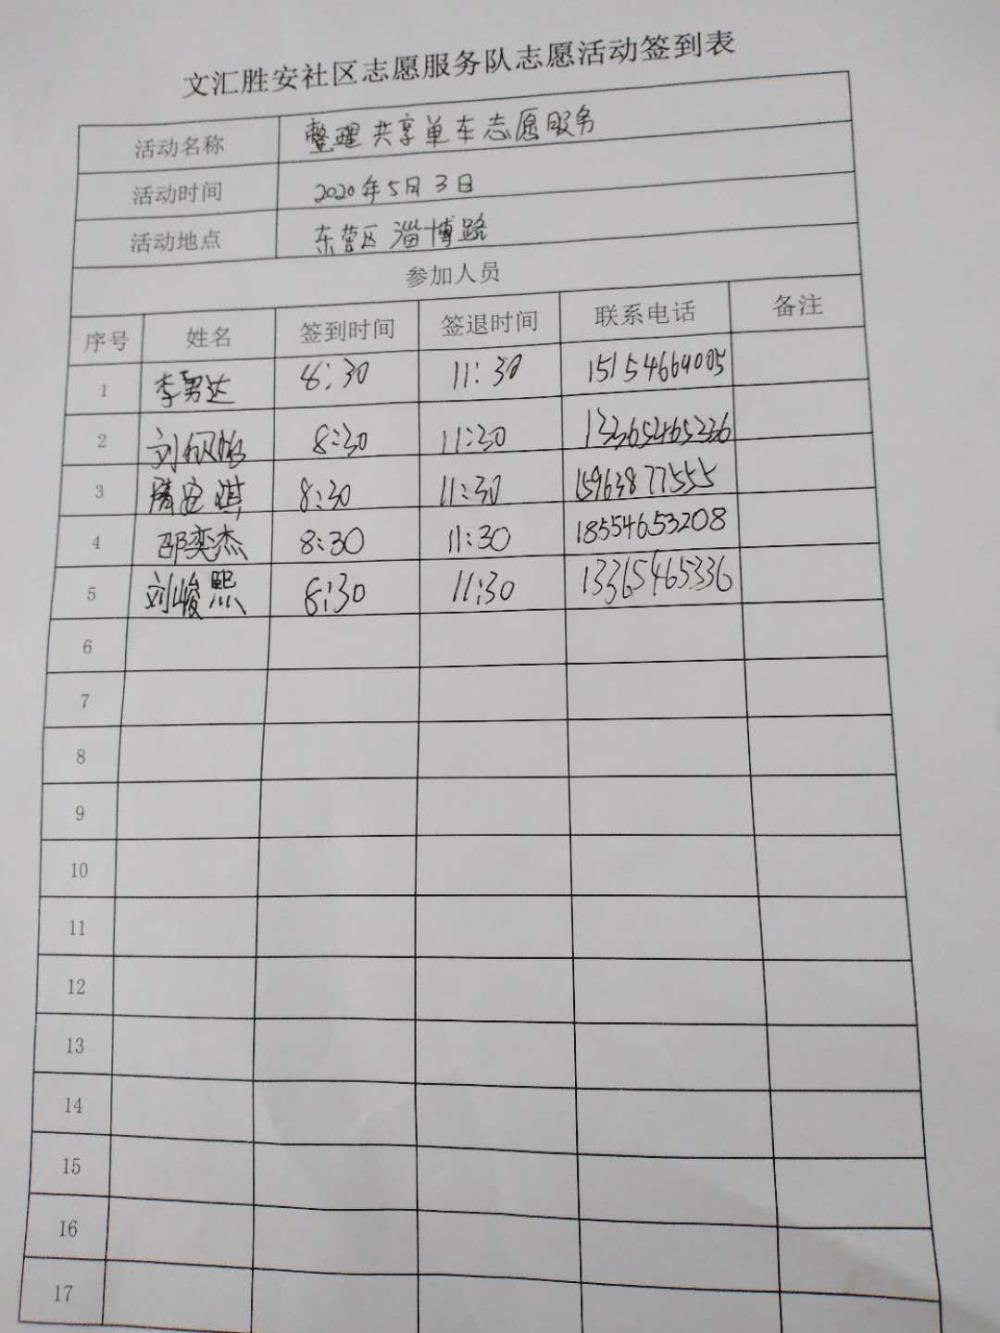 文汇胜安社区志愿服务队志愿活动签到表
活动名称 整理共享单车志愿服务
活动时间 2020年5月3日
活动地点 东营区淄博路
参加人员
序号 姓名 签到时间 签退时间 联系电话 备注
1 李男达 8:30 11:30 15154669005
2 刘 8:30 11:30 13365465336
3 8:30 11:30 15963877555
4 邵奕杰 8:30 11:30 18554653208
5 刘峻熙 8:30 11:30 13365465336
6
7
8
9
10
11
12
13
14
15
16
17